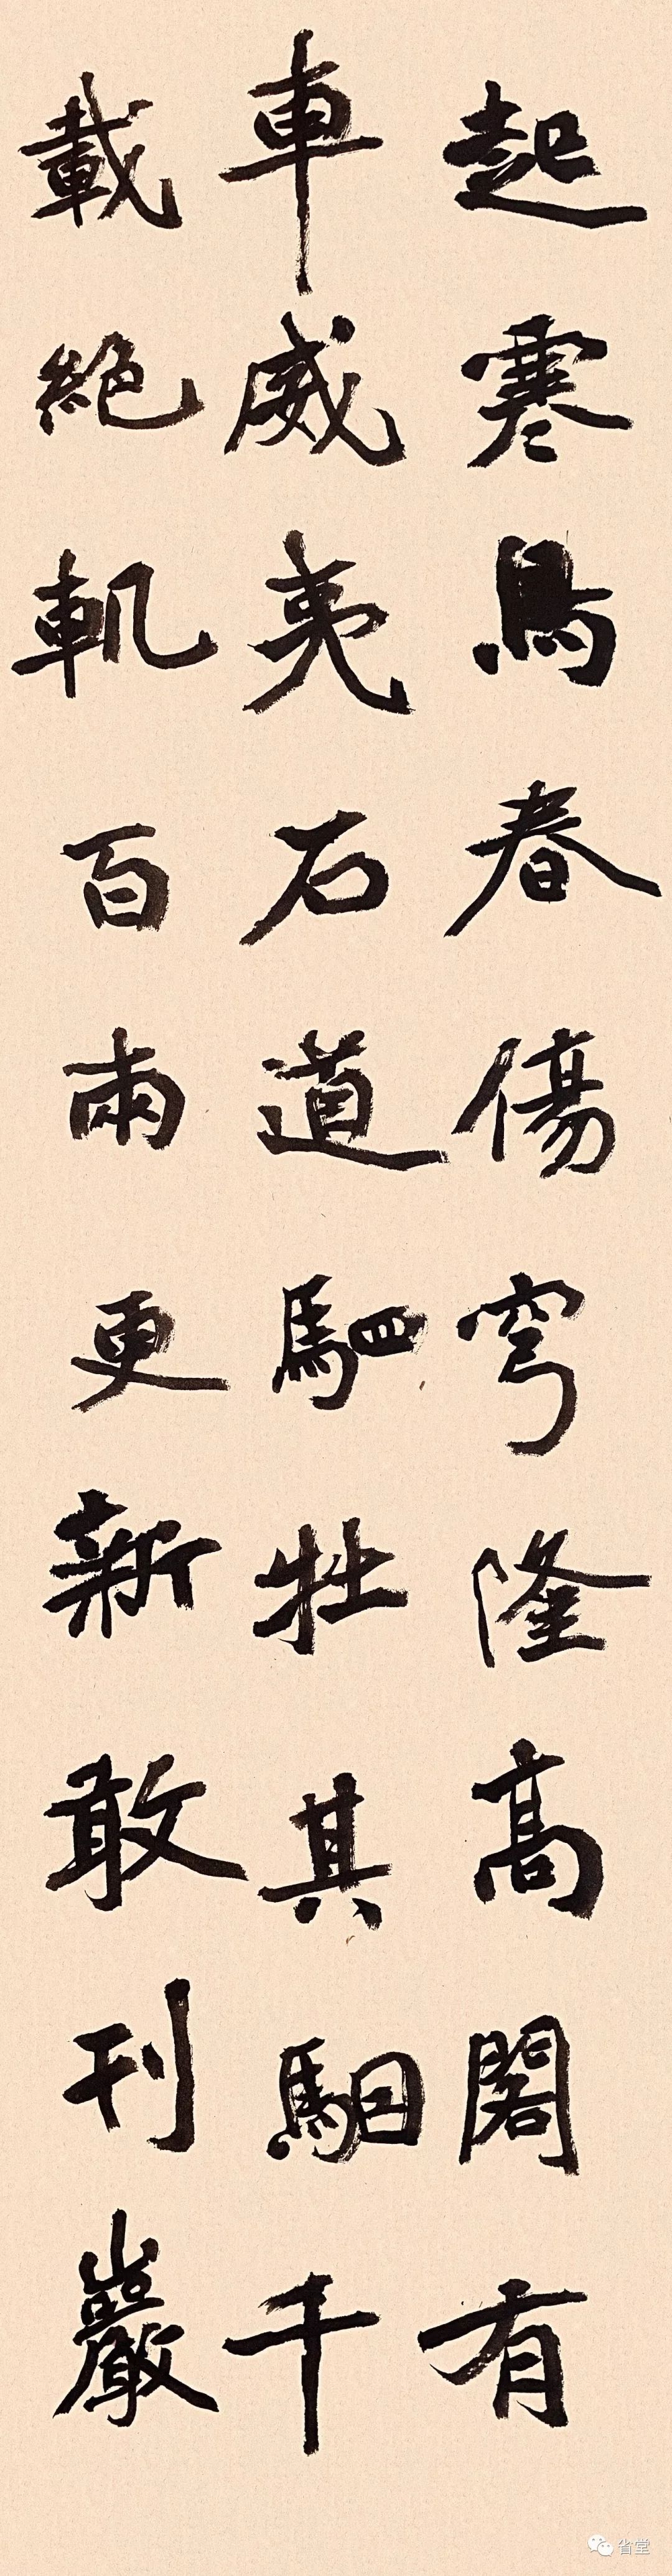 起寒鳥春傷穹隆高閣有
車威夷石道駟牡其駰千
載絕軌百兩更新敢刊巖
省堂